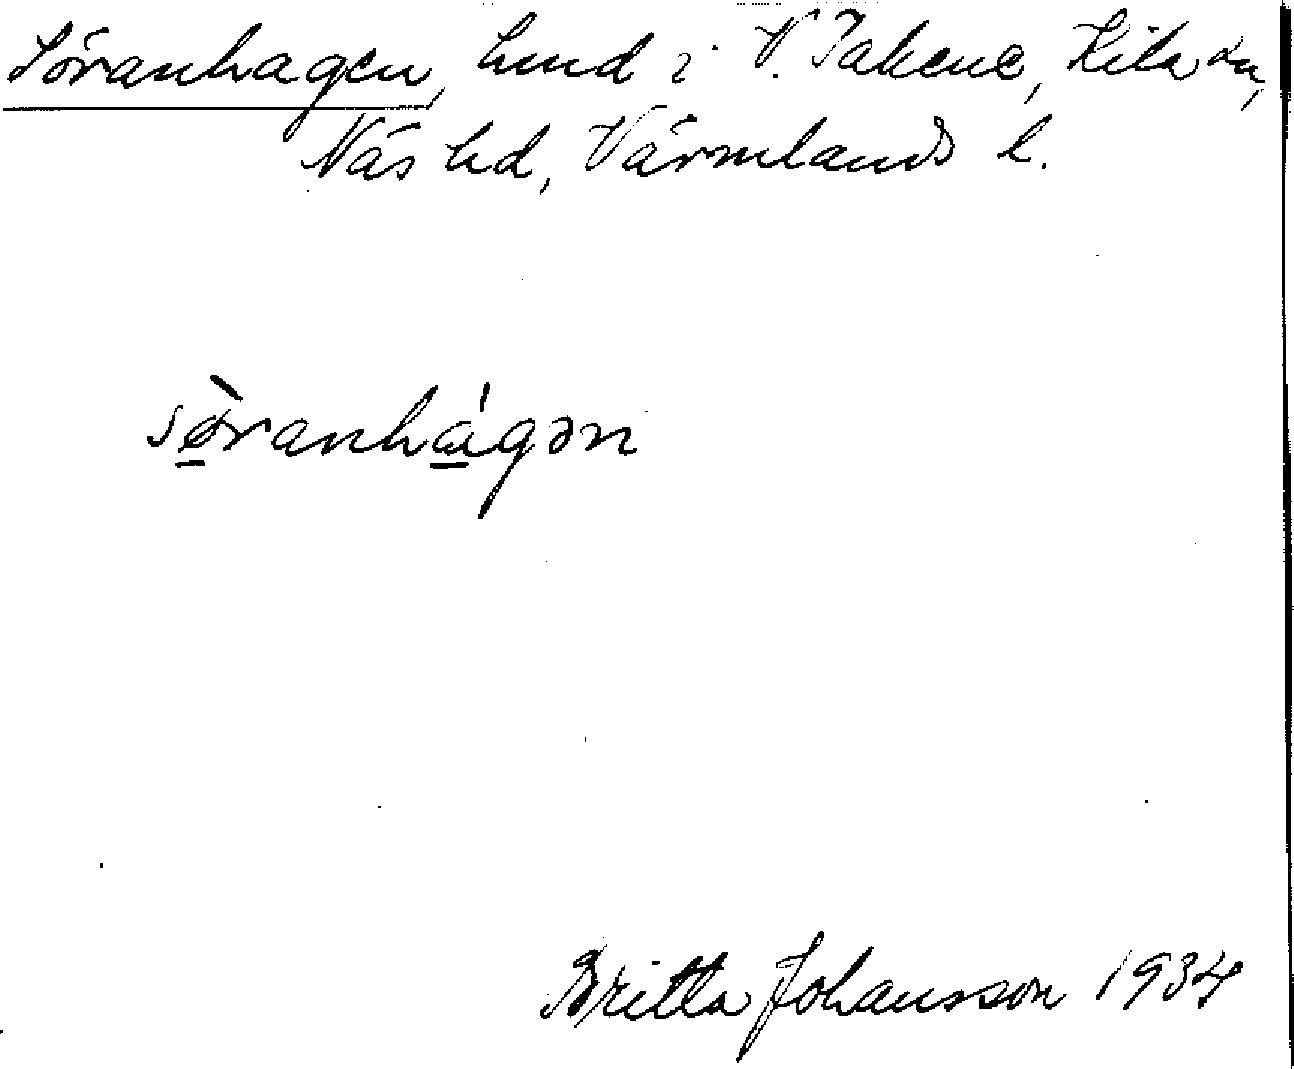 Söranhagen, lund i V. Takene, Kila sn,
Näs hd, Värmlands l.
sø̀ranhágən
Britta Johansson 1934